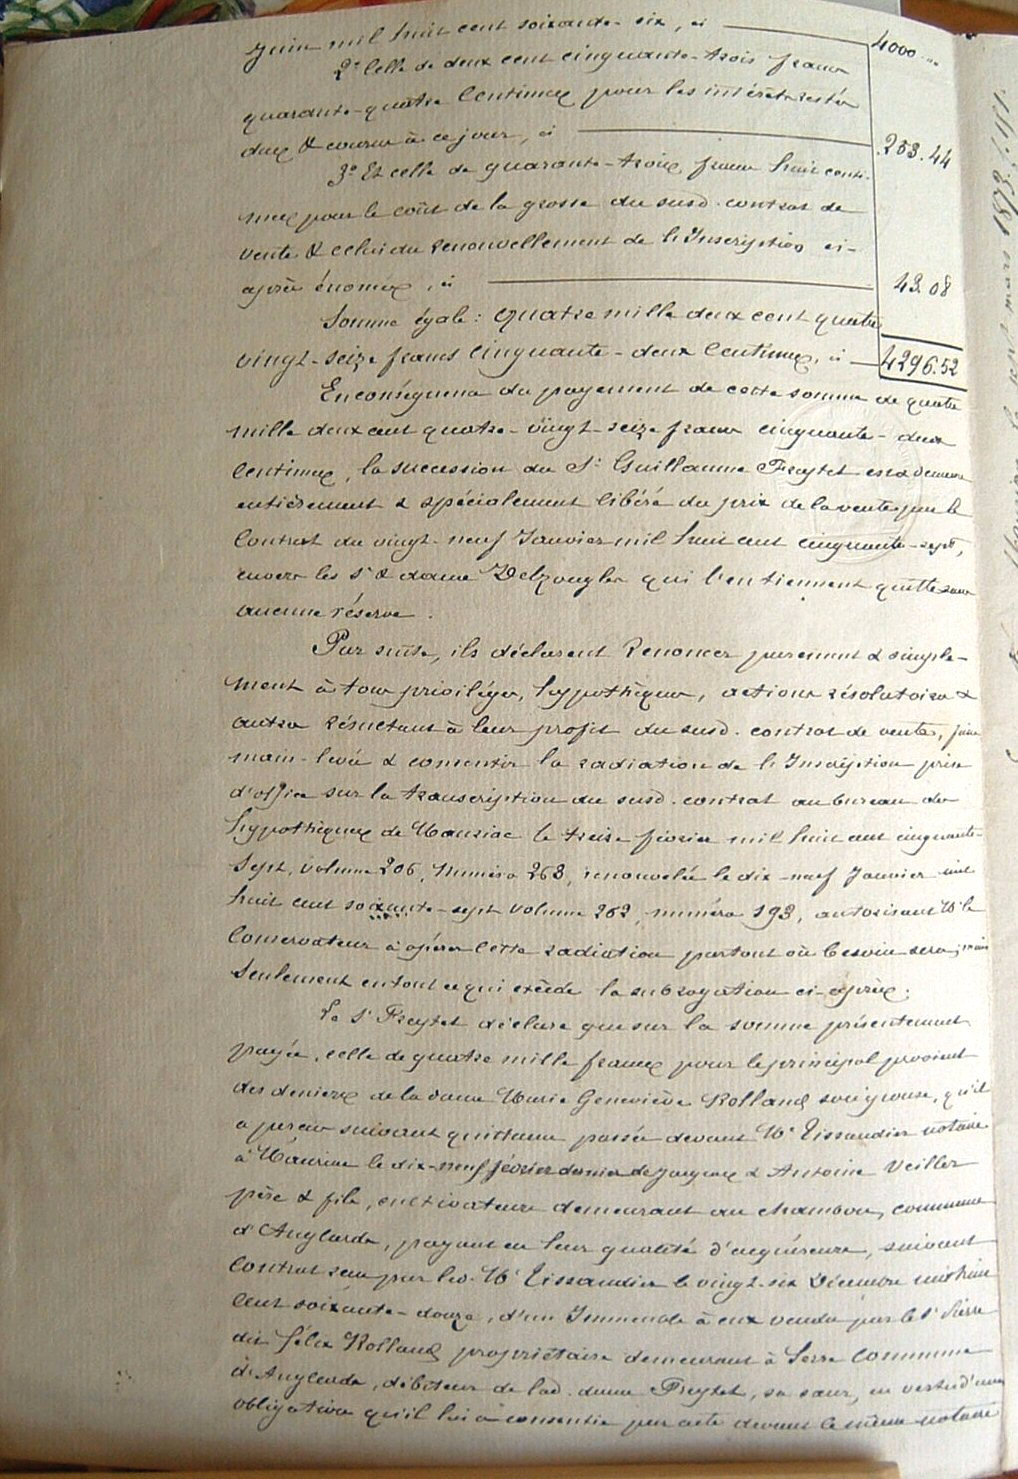 Juin mil huit cent soixante-six, ci 4000
2° Celle de deux cent cinquante-trois francs
quarante-quatre Centimes pour les intérêts restés
dus & courus à ce jour, ci 253.44
3° Et celle de quarante-trois francs huit centi-
mes pour le coût de la grosse du susd. contrat de
vente & celui du renouvellement de l'Inscription ci-
après énoncés, ci 43.08
Somme égale : quatre mille deux cent quatre
vingt-seize francs Cinquante-deux Centimes, ci 4296.52
En conséquence du payement de cette somme de quatre
mille deux cent quatre-vingt-seize francs cinquante-deux
Centimes, la succession du Sr Guillaume Freytet
entièrement & spécialement libéré du prix de la vente par le
Contrat du vingt-neuf Janvier mil huit cent cinquante-sept,
envers les Sr & dame Delzongles qui l'en tiennent quitte sans
aucune réserve.
Par suite, ils déclarent Renoncer purement & simple-
ment à tous privilèges, hypothèques, actions résolutoires &
autres résultant à leur profit du susd. contrat de vente, faire
main-levée & consentir la radiation de l'Inscription prise
d'office sur la transcription du susd. contrat au bureau des
hypothèques de Mauriac le treize février mil huit cent cinquante-
sept, volume 206, Numéro 263, renouvelée le dix-neuf Janvier mil
huit cent soixante-sept volume 262, numéro 193, autorisant Mr le
Conservateur à opérer cette radiation partout où besoin sera, mais
Seulement en tout ce qui excède la subrogation ci-après.
Le Sr Freytet déclare que sur la somme présentement
payée, celle de quatre mille francs pour le principal provient
des deniers de la dame Marie Geneviève Rolland son épouse, qu'il
a perçu suivant quittance passée devant Me Tissandier notaire
à Mauriac le dix-neuf février dernier de Jacques & Antoine Veiller
père & fils, cultivateurs demeurant au Chambon, commune
d'Anglards, payant en leur qualité d'acquéreurs, suivant
Contrat reçu par led. Me Tissandier le vingt-six Décembre mil huit
cent soixante-douze, d'un Immeuble à eux vendu par le Sr Pierre
dit félix Rolland propriétaire demeurant à Serre Commune
d'Anglards, débiteur de lad. dame Freytet, sa sœur, en vertu d'une
obligation qu'il lui a consentie par acte devant le même notaire